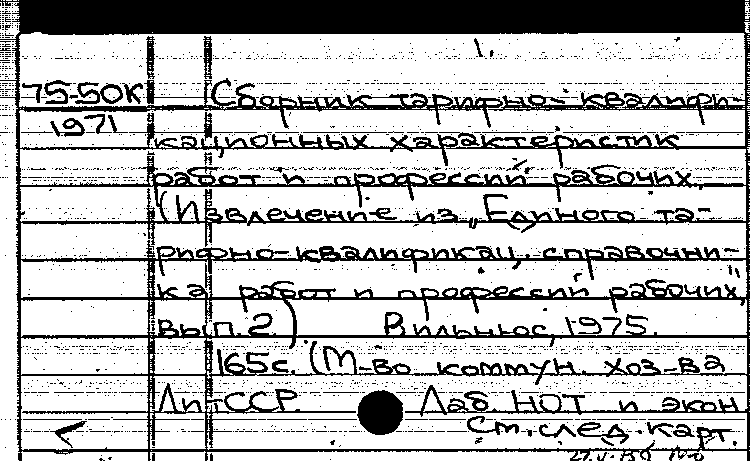 1.
75-50К Сборник тарифно-квалифи-
1971
кационных характеристик
работ и профессий рабочих.
(Извлечение из „Единого та-
рифно-квалификац. справочни-
ка работ и профессий рабочих",
вып. 2) Вильнюс, 1975.
165с. (М-во коммун. хоз-ва
ЛитССР. Лаб. НОТ и экон
См. след. карт.